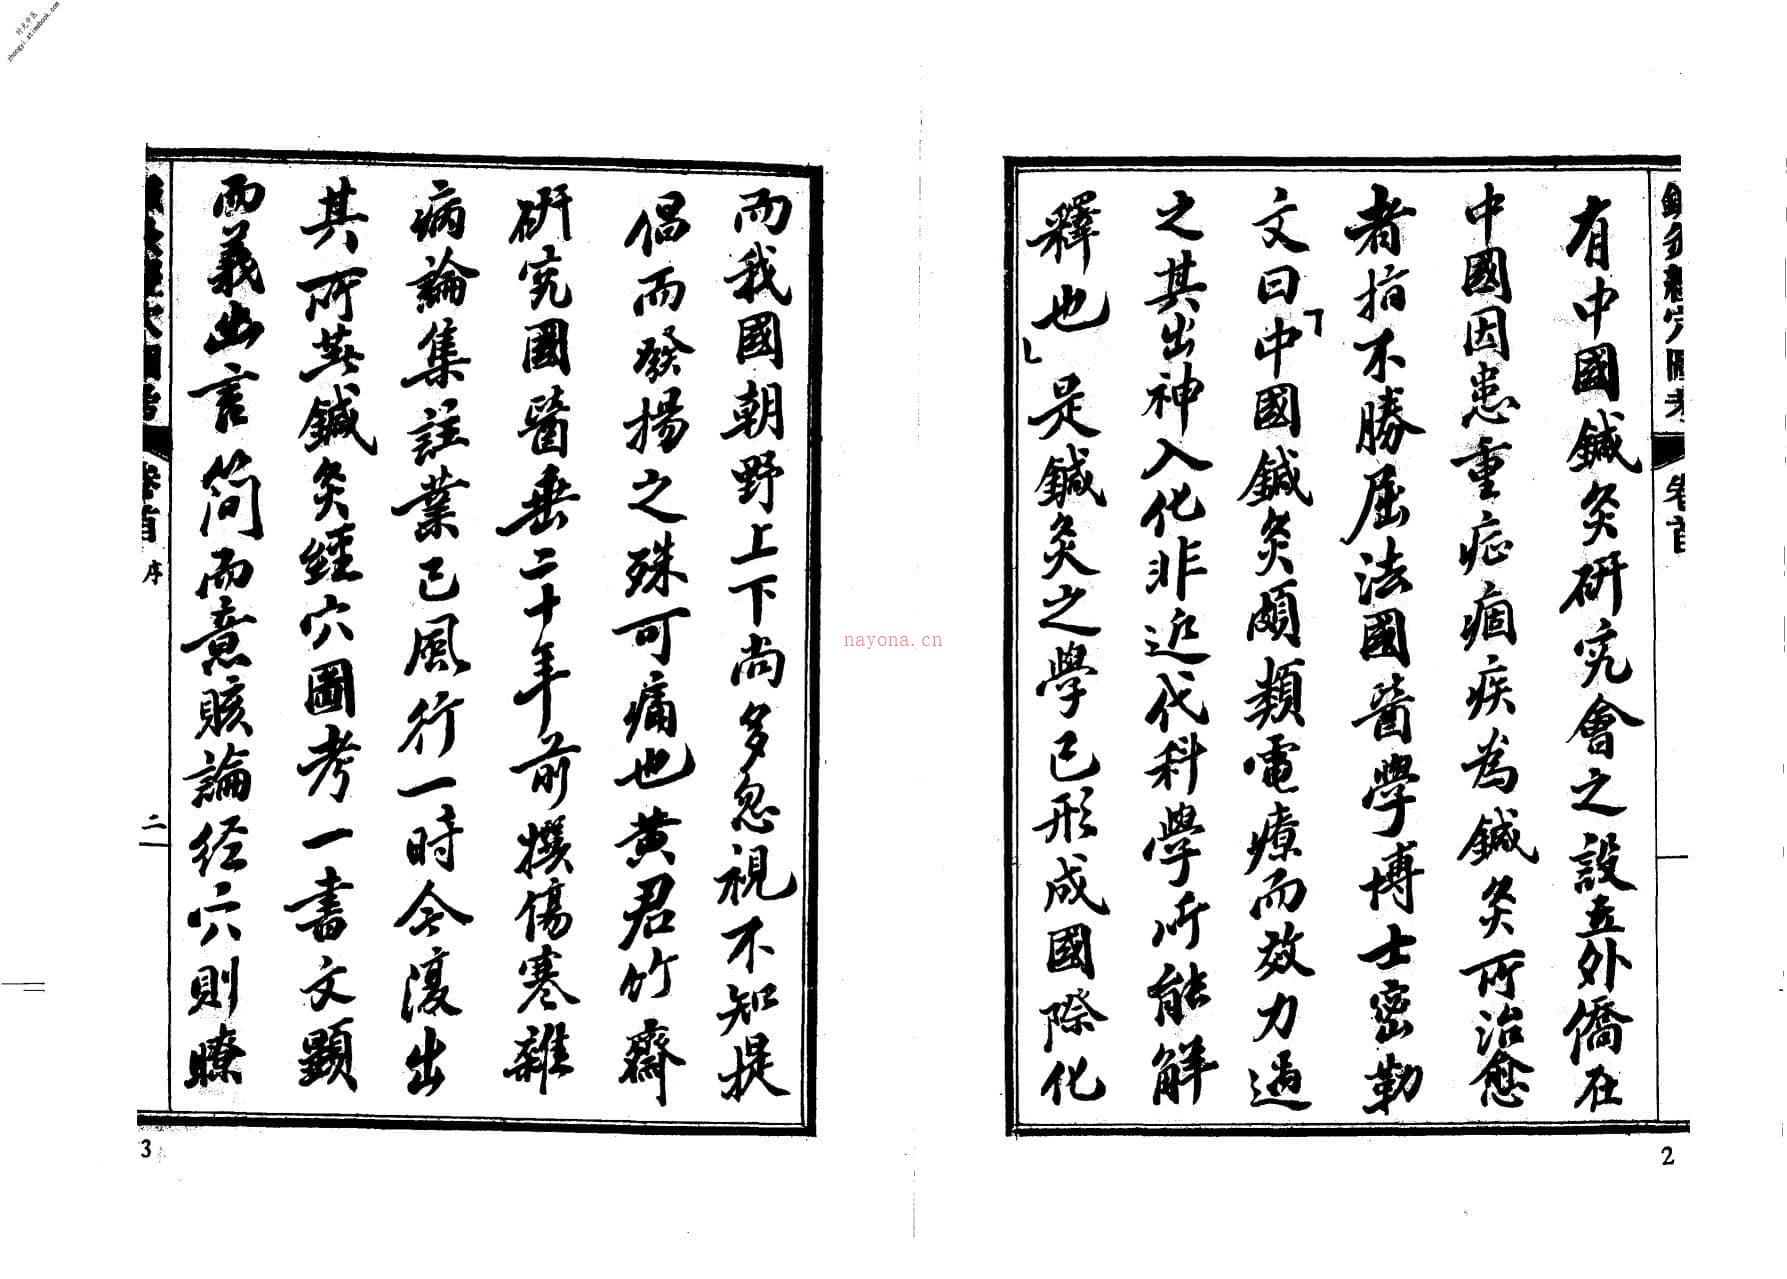 时光中医
zhongyi.stimebook.com
鍼灸經穴圖考
卷首
有中國鍼灸研究會之設立外僑在
中國因患重症痼疾為鍼灸所治愈
者指不勝屈法國醫學博士密勒
文曰「中國鍼灸頗類電療而效力過
之其出神入化非近代科學所能解
釋也」是鍼灸之學已形成國際化
2
而我國朝野上下尚多忽視不知提
倡而發揚之殊可痛也黄君竹齋
研究國醫垂二十年前撰傷寒雜
病論集註業已風行一時今復出
其所著鍼灸經穴圖考一書文顯
而義幽言簡而意賅論经穴則瞭
卷首
序
二
3
nayona.cn